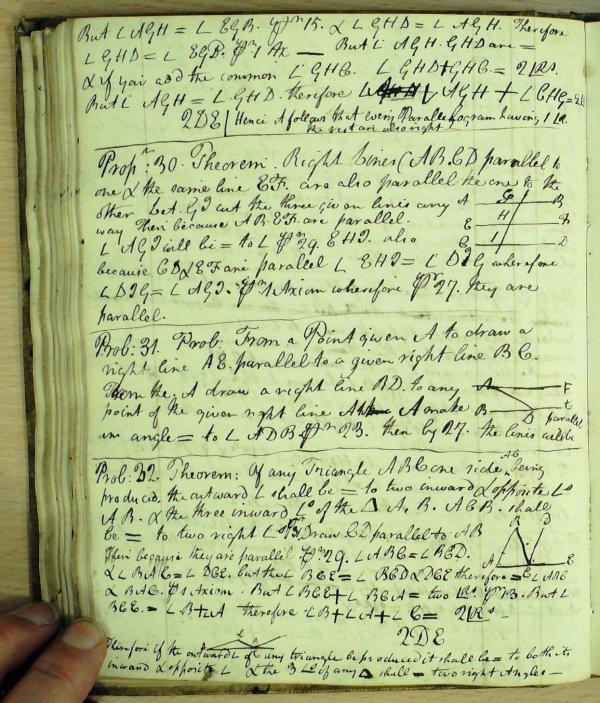 But ∠ AGH = ∠ EGB. Pr 15. & ∠ GHD = ∠ AGH. Therefore
∠ GHD = ∠ EGB. Pr 1 Ax — But ∠s AGH. GHD are =
& if you add the common ∠ GHC. ∠ GHD + GHC = 2∠Rs.
But ∠ AGH = ∠ GHD. therefore ∠ AGH + ∠ CHG = 2∠Rs
2DE | Hence it follows that every Parallelogram having 1 ∠R.
the rest are also right
Prop: 30. Theorem. Right lines (AB. CD parallel to
one & the same line EF. are also parallel the one to the
other. Let GI cut the three given lines any
way Then because AB. EF. are parallel.
∠ AGI will be = to ∠ Pr 29. EHI. also
because CD & EF are parallel ∠ EHI = ∠ DIG wherefore
∠ DIG = ∠ AGI. Pr 1 Axiom wherefore Pr 27. they are
parallel.
A G B
E H F
C I D
Prob: 31. Prob: From a Point given A to draw a
right line AE. parallel to a given right line BC.
From the A draw a right line BD. to any
point of the given right line A make
an angle = to ∠ ADB Pr 23. then by 27. the lines will be
parallel
A F
B D C
Prob. 32. Theorem: Of any Triangle ABC one side being
produced, the outward ∠ shall be = to two inward & opposite ∠s
A B. & the three inward ∠s of the Δ A. B. ACB. shall
be = to two right ∠s Draw CD parallel to AB
Then because they are parallel Pr 29. ∠ ABC = ∠ BCD.
& ∠ BAC = ∠ DCE. but the ∠ BCE = ∠ BCD & DCE therefore = ∠ ABC
& BAC. Pr Axiom. But ∠ BCE + ∠ BCA = two ∠Rs Pr 13. But ∠
BCE. = ∠ B + ∠ A therefore ∠ B + ∠ A + ∠ C = 2∠Rs —
2DE
Therefore if the outward ∠ of any triangle be produced it shall be = to both its
inward & opposite ∠ & the 3 ∠s of any Δ shall = two right Angles —